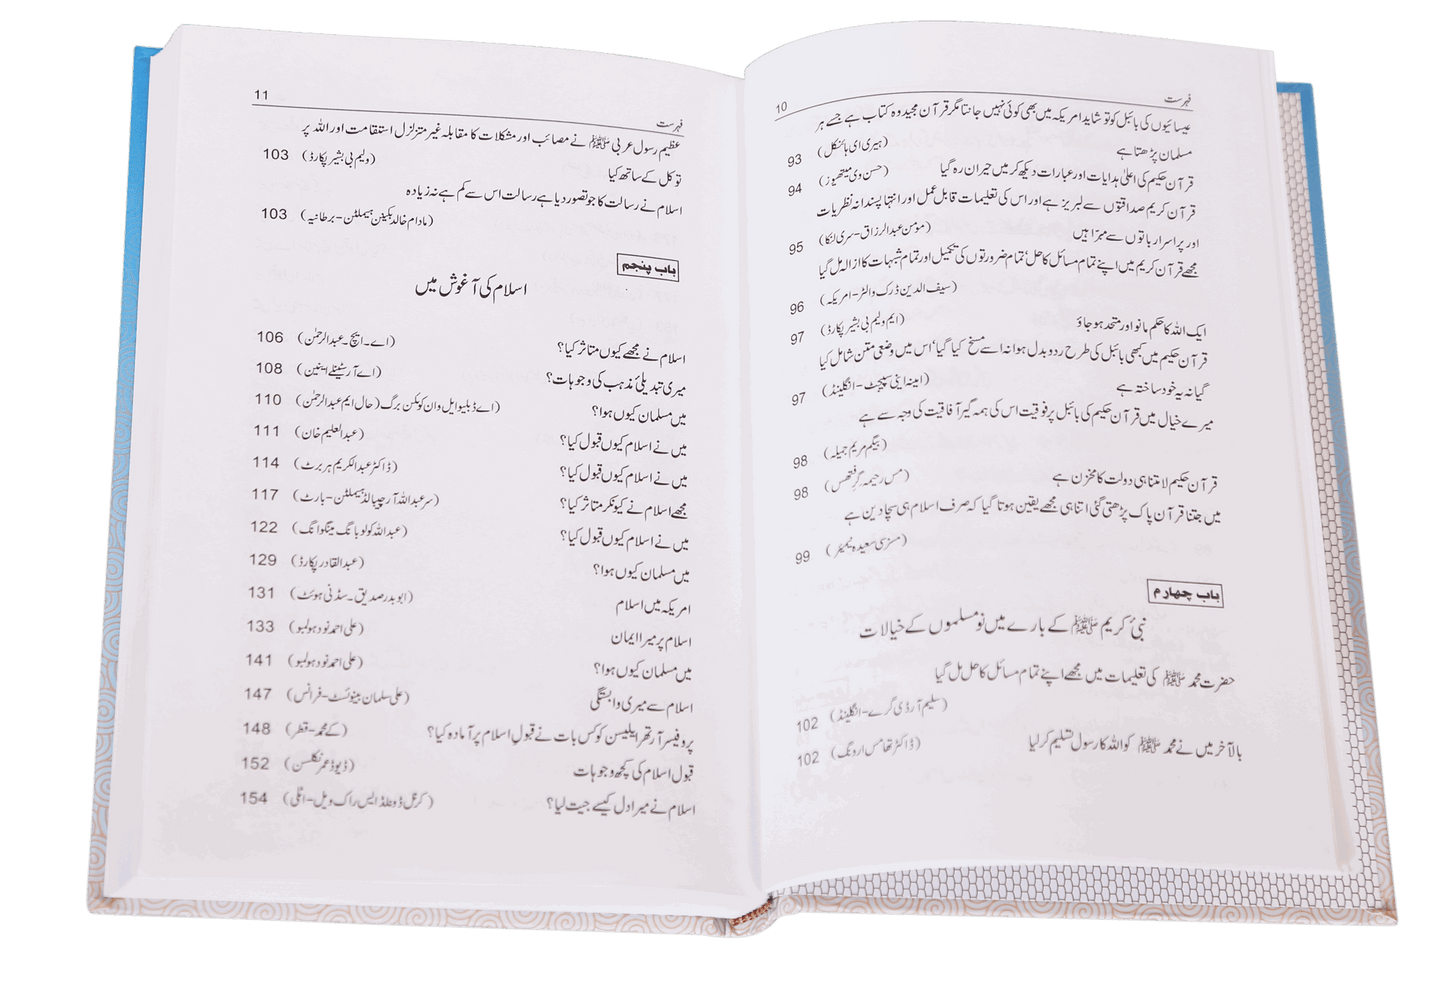 فہرست 10
عیسائیوں کی بائبل کو تو شاید امریکہ میں بھی کوئی نہیں جانتا مگر قرآن مجید وہ کتاب ہے جسے ہر
مسلمان پڑھتا ہے (ہیری ای ہائنکل) 93
قرآن حکیم کی اعلیٰ ہدایات اور عبارات دیکھ کر میں حیران رہ گیا (حسن وی میتھیوز) 94
قرآن کریم صداقتوں سے لبریز ہے اور اس کی تعلیمات قابل عمل اور انتہا پسندانہ نظریات
اور پراسرار باتوں سے مبرّا ہیں (مومن عبدالرزاق-سری لنکا) 95
مجھے قرآن کریم میں اپنے تمام مسائل کا حل‘ تمام ضرورتوں کی تکمیل اور تمام شبہات کا ازالہ مل گیا
(سیف الدین ڈرک والٹر-امریکہ) 96
ایک اللہ کا حکم مانو اور متحد ہو جاؤ (ایم ولیم بی بشیر پکارڈ) 97
قرآن حکیم میں کبھی بائبل کی طرح ردوبدل ہوا نہ اسے مسخ کیا گیا‘ اس میں وضعی متن شامل کیا
گیا نہ یہ خود ساختہ ہے (امینہ اینی سپیجٹ-انگلینڈ) 97
میرے خیال میں قرآن حکیم کی بائبل پر فوقیت اس کی ہمہ گیر آفاقیت کی وجہ سے ہے
(بیگم مریم جمیلہ) 98
قرآن حکیم لامتناہی دولت کا مخزن ہے (مس رحیمہ گرفتھس) 98
میں جتنا قرآن پاک پڑھتی گئی اتنا ہی مجھے یقین ہوتا گیا کہ صرف اسلام ہی سچا دین ہے
(مسز سی سعیدہ نیمیئر) 99
باب چہارم
نبیٔ کریم ﷺ کے بارے میں نو مسلموں کے خیالات
حضرت محمد ﷺ کی تعلیمات میں مجھے اپنے تمام مسائل کا حل مل گیا
(سلیم آر ڈی گرے-انگلینڈ) 102
بالآخر میں نے محمد ﷺ کو اللہ کا رسول تسلیم کر لیا (ڈاکٹر تھامس اردنگ) 102
فہرست 11
عظیم رسول عربی ﷺ نے مصائب اور مشکلات کا مقابلہ غیر متزلزل استقامت اور اللہ پر
توکل کے ساتھ کیا (ولیم بی بشیر پکارڈ) 103
اسلام نے رسالت کا جو تصور دیا ہے رسالت اس سے کم ہے نہ زیادہ
(مادام خالد بکینن ہیملٹن-برطانیہ) 103
باب پنجم
اسلام کی آغوش میں
اسلام نے مجھے کیوں متاثر کیا؟ (اے۔ایچ۔عبدالرحمٰن) 106
میری تبدیلیٔ مذہب کی وجوہات؟ (اے آر سٹینلے اینین) 108
میں مسلمان کیوں ہوا؟ (اے ڈبلیو ایل وان کوکن برگ (حال ایم عبدالرحمٰن) 110
میں نے اسلام کیوں قبول کیا؟ (عبدالعلیم خان) 111
میں نے اسلام کیوں قبول کیا؟ (ڈاکٹر عبدالکریم ہربرٹ) 114
مجھے اسلام نے کیونکر متاثر کیا؟ (سر عبداللہ آرچیبالڈ ہیملٹن-بارٹ) 117
میں نے اسلام کیوں قبول کیا؟ (عبداللہ کولوبانگ مینگوانگ) 122
میں مسلمان کیوں ہوا؟ (عبدالقادر پکارڈ) 129
امریکہ میں اسلام (ابوبدر صدیق۔سڈنی ہوئٹ) 131
اسلام پر میرا ایمان (علی احمد نود ہولمبو) 133
میں مسلمان کیوں ہوا؟ (علی احمد نود ہولمبو) 141
اسلام سے میری وابستگی (علی سلمان بینوئسٹ-فرانس) 147
پروفیسر آرتھر ایلیسن کو کس بات نے قبولِ اسلام پر آمادہ کیا؟ (کے محمد-قطر) 148
قبول اسلام کی کچھ وجوہات (ڈیوڈ عمر نکلسن) 152
اسلام نے میرا دل کیسے جیت لیا؟ (کرنل ڈونلڈ ایس راک ویل-اٹلی) 154